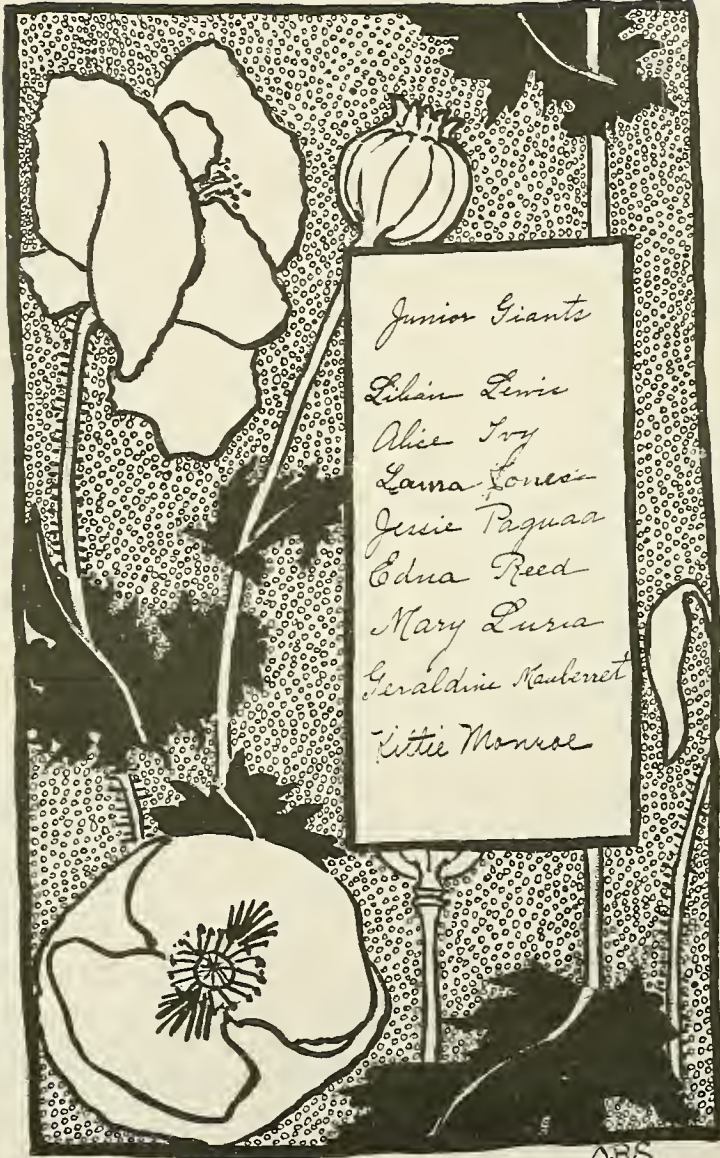 Junior Giants
Lilian Lewis
Alice Ivy
Laura Jones
Jessie Paguaa
Edna Reed
Mary Luria
Geraldine Mauberret
Kittie Monroe